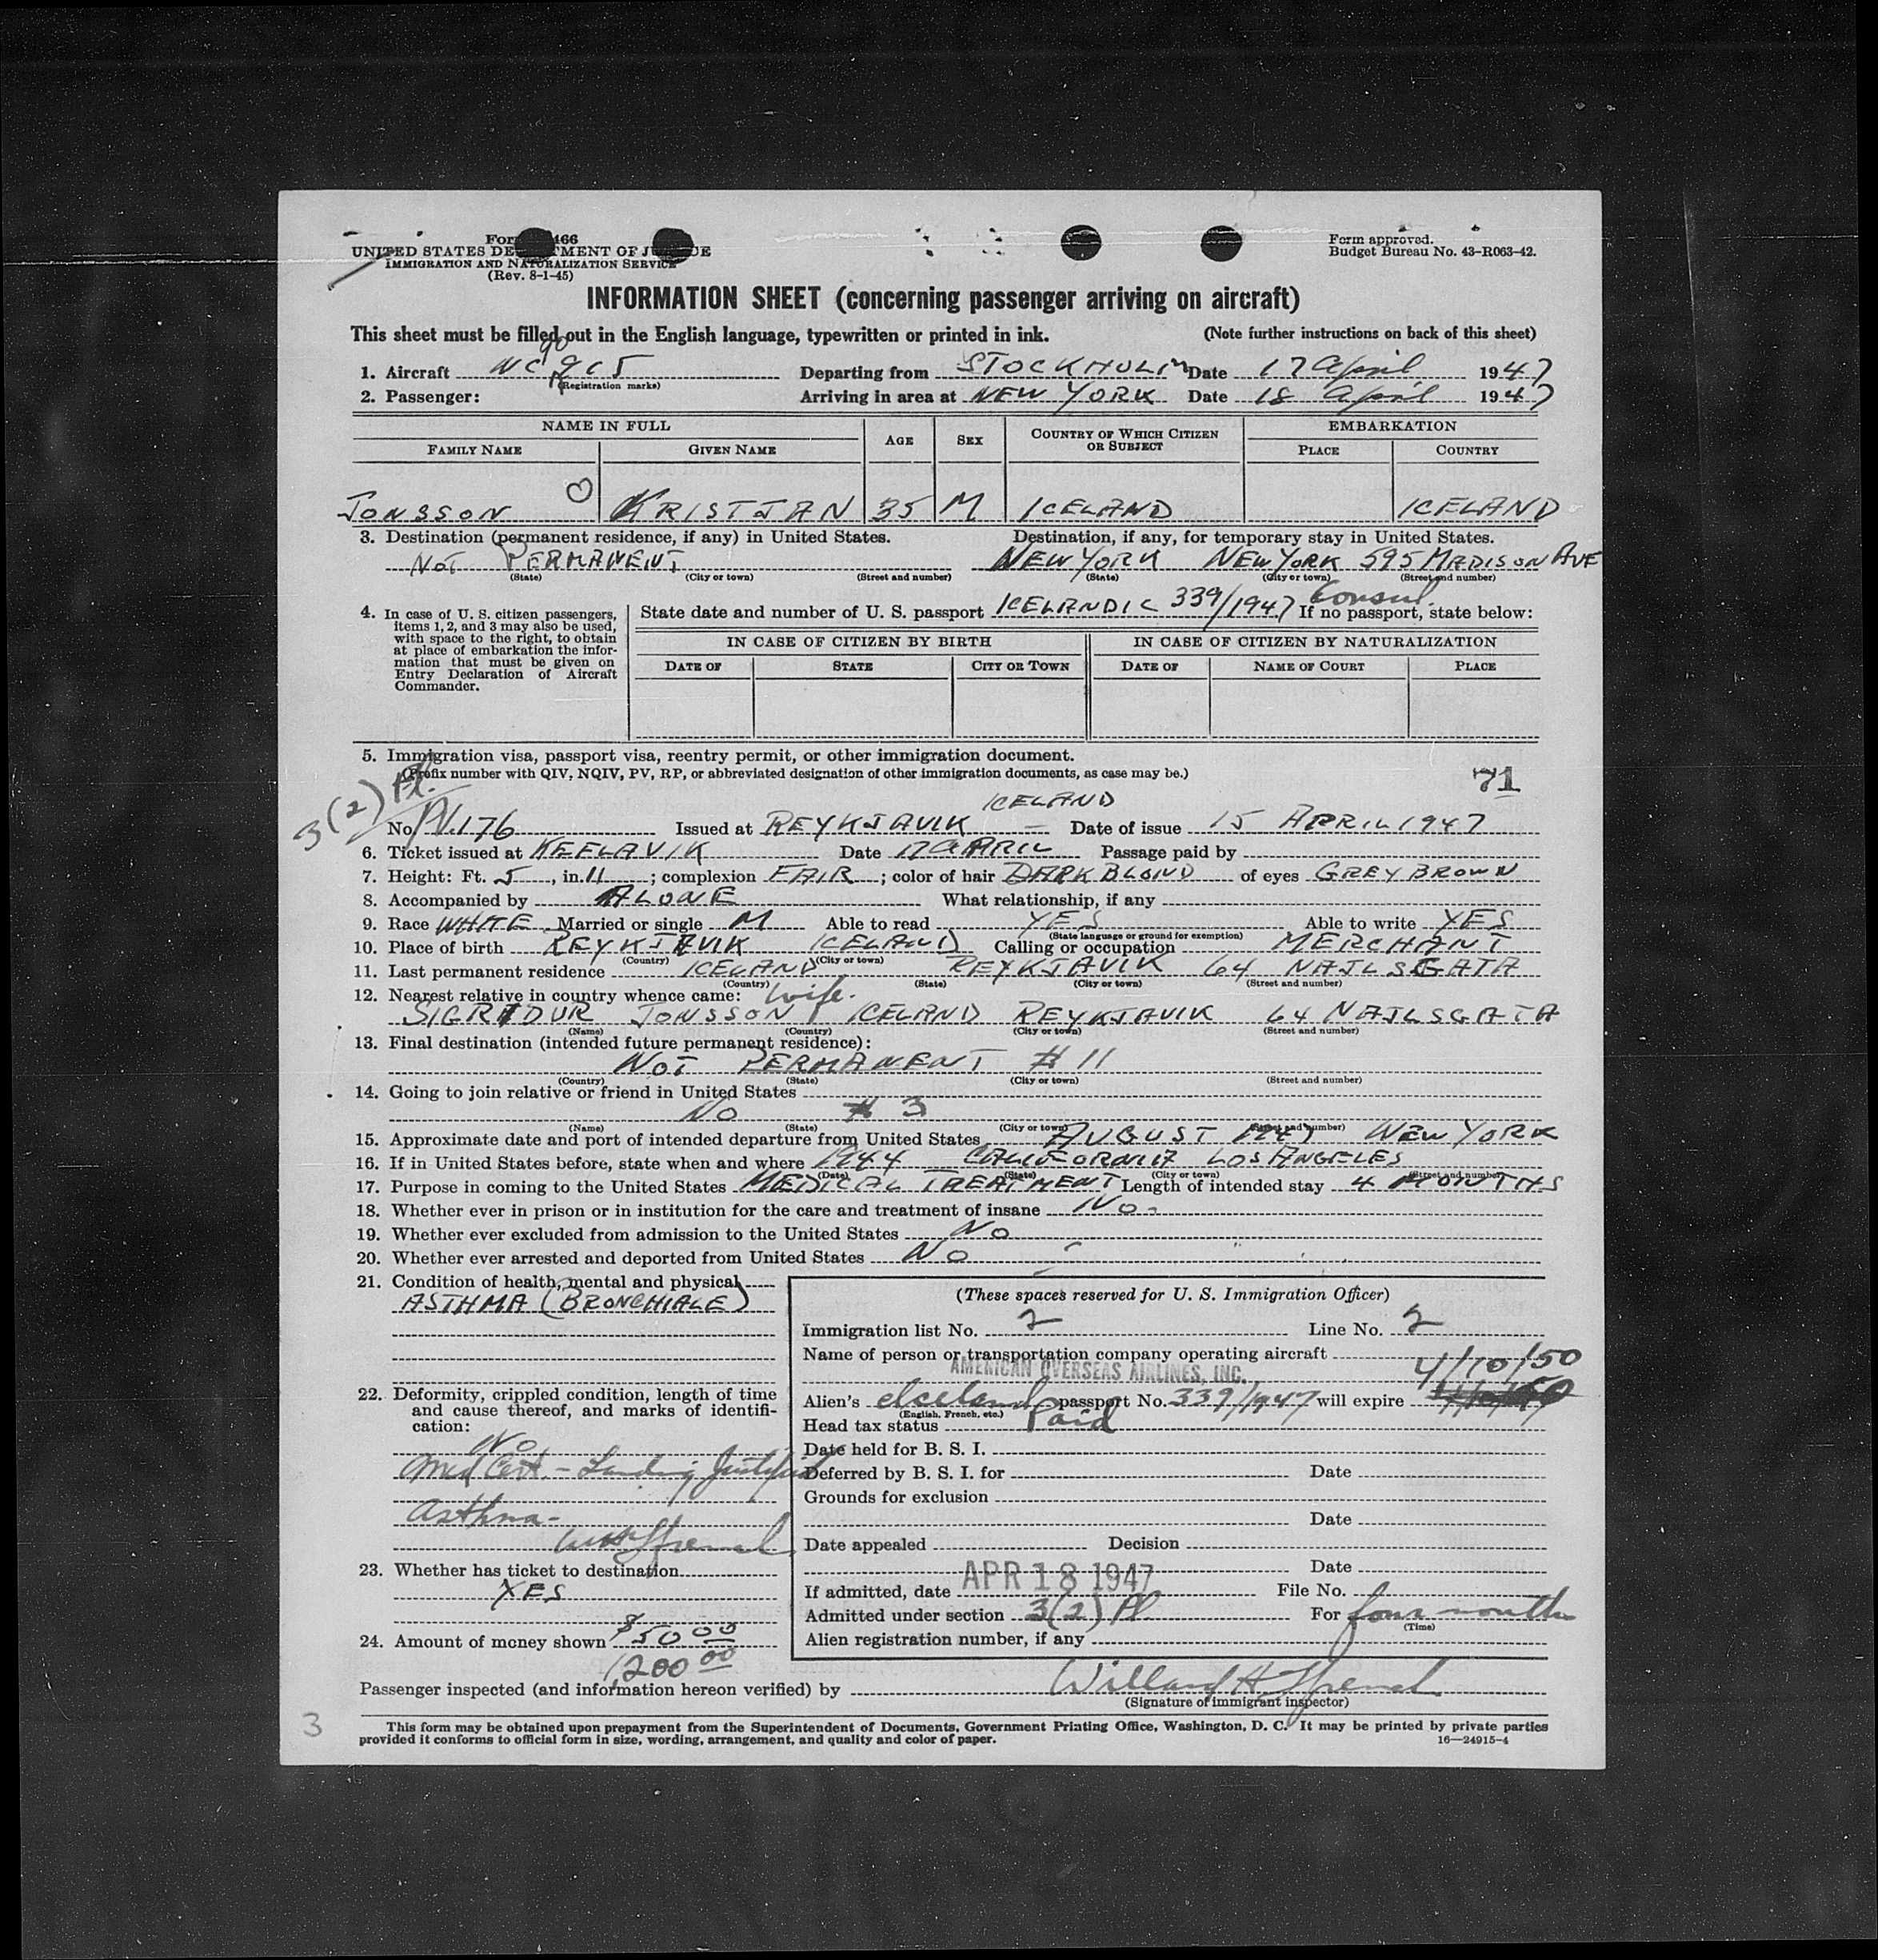 Form 466
UNITED STATES DEPARTMENT OF JUSTICE
IMMIGRATION AND NATURALIZATION SERVICE
(Rev. 8-1-45)
Form approved.
Budget Bureau No. 43-R063-42.
INFORMATION SHEET (concerning passenger arriving on aircraft)
This sheet must be filled out in the English language, typewritten or printed in ink. (Note further instructions on back of this sheet)
1. Aircraft NC 90915 (Registration marks) Departing from STOCKHOLM Date 17 April 1947
2. Passenger: Arriving in area at NEW YORK Date 18 April 1947
NAME IN FULL AGE SEX COUNTRY OF WHICH CITIZEN OR SUBJECT EMBARKATION
FAMILY NAME GIVEN NAME PLACE COUNTRY
JONSSON KRISTJAN 35 M ICELAND ICELAND
3. Destination (permanent residence, if any) in United States. Destination, if any, for temporary stay in United States.
NOT PERMANENT NEW YORK NEW YORK 595 MADISON AVE
(State) (City or town) (Street and number) (State) (City or town) (Street and number)
Consul.
4. In case of U. S. citizen passengers, items 1, 2, and 3 may also be used, with space to the right, to obtain at place of embarkation the information that must be given on Entry Declaration of Aircraft Commander.
State date and number of U. S. passport ICELANDIC 339/1947 If no passport, state below:
IN CASE OF CITIZEN BY BIRTH IN CASE OF CITIZEN BY NATURALIZATION
DATE OF STATE CITY OR TOWN DATE OF NAME OF COURT PLACE
5. Immigration visa, passport visa, reentry permit, or other immigration document.
(Prefix number with QIV, NQIV, PV, RP, or abbreviated designation of other immigration documents, as case may be.)
71
3(2) Pl.
ICELAND
No. PV. 176 Issued at REYKJAVIK Date of issue 15 APRIL 1947
6. Ticket issued at KEFLAVIK Date 17 APRIL Passage paid by
7. Height: Ft. 5, in. 11; complexion FAIR; color of hair DARK BLOND of eyes GREY BROWN
8. Accompanied by ALONE What relationship, if any
9. Race WHITE Married or single M Able to read YES Able to write YES
(State language or ground for exemption)
10. Place of birth REYKJAVIK ICELAND Calling or occupation MERCHANT
(Country) (City or town)
11. Last permanent residence ICELAND REYKJAVIK 64 NAJLSGATA
(Country) (State) (City or town) (Street and number)
12. Nearest relative in country whence came: Wife.
SIGRIDUR JONSSON ICELAND REYKJAVIK 64 NAJLSGATA
(Name) (Country) (City or town) (Street and number)
13. Final destination (intended future permanent residence):
NOT PERMANENT # 11
(Country) (State) (City or town) (Street and number)
14. Going to join relative or friend in United States
NO # 3
(Name) (State) (City or town) (Street and number)
15. Approximate date and port of intended departure from United States AUGUST 1947 NEW YORK
16. If in United States before, state when and where 1944 CALIFORNIA LOS ANGELES
(Date) (State) (City or town) (Street and number)
17. Purpose in coming to the United States MEDICAL TREATMENT Length of intended stay 4 MONTHS
18. Whether ever in prison or in institution for the care and treatment of insane NO.
19. Whether ever excluded from admission to the United States NO
20. Whether ever arrested and deported from United States NO
21. Condition of health, mental and physical
ASTHMA (BRONCHIALE)
22. Deformity, crippled condition, length of time and cause thereof, and marks of identification:
NO
Med Cert - Landing Justified
Asthma -
WHFrenal
23. Whether has ticket to destination
YES
24. Amount of money shown $50.00
1200.00
(These spaces reserved for U. S. Immigration Officer)
Immigration list No. 2 Line No. 2
Name of person or transportation company operating aircraft
AMERICAN OVERSEAS AIRLINES, INC.
4/10/50
Alien's Iceland passport No. 339/1947 will expire
(English, French, etc.)
Head tax status Paid
Date held for B. S. I.
Deferred by B. S. I. for Date
Grounds for exclusion
Date
Date appealed Decision
Date
If admitted, date APR 18 1947 File No.
Admitted under section 3(2) Pl For four months
(Time)
Alien registration number, if any
Passenger inspected (and information hereon verified) by Willard H
(Signature of immigrant inspector)
3
This form may be obtained upon prepayment from the Superintendent of Documents, Government Printing Office, Washington, D. C. It may be printed by private parties
provided it conforms to official form in size, wording, arrangement, and quality and color of paper. 16—24915-4